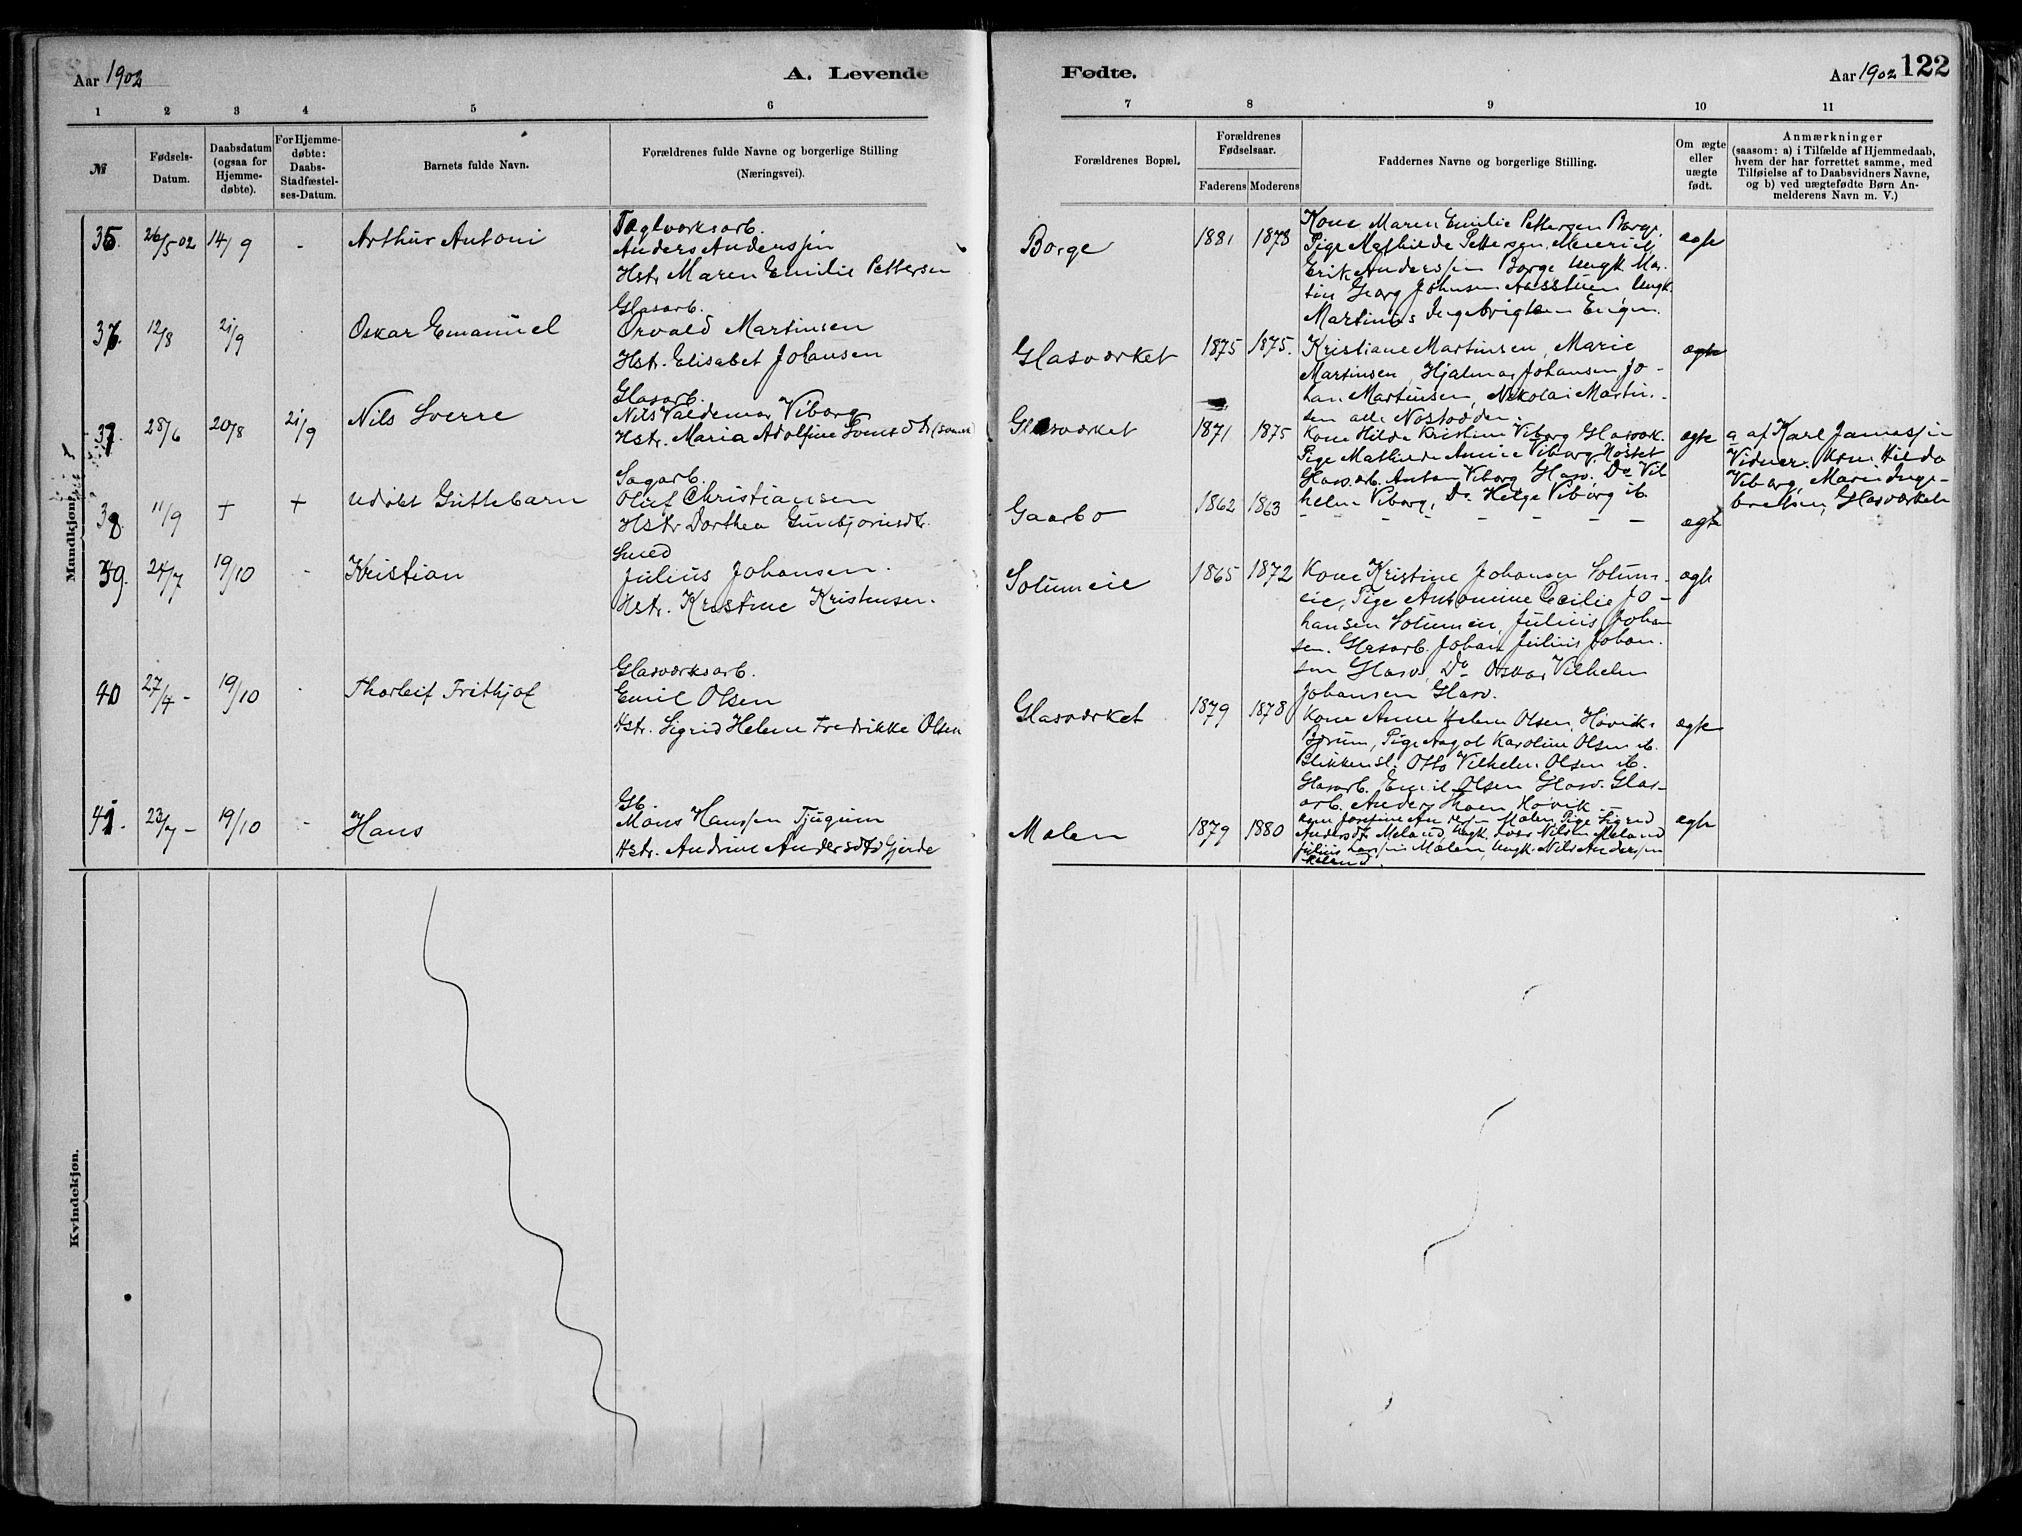 Aar 1902
A. Levende
Fødte.
Aar 1902 122
1 2 3 4 5 6 7 8 9 10 11
No
Fødsels-
Datum.
Daabsdatum
(ogsaa for
Hjemme-
døbte).
For Hjemme-
døbte:
Daabs-
Stadfæstel-
ses-Datum.
Barnets fulde Navn.
Forældrenes fulde Navne og borgerlige Stilling
(Næringsvei).
Forældrenes Bopæl.
Forældrenes
Fødselsaar.
Faderens Moderens
Faddernes Navne og borgerlige Stilling.
Om ægte
eller
uægte
født.
Anmærkninger
(saasom: a) i Tilfælde af Hjemmedaab,
hvem der har forrettet samme, med
Tilføielse af to Daabsvidners Navne,
og b) ved uægtefødte Børn An-
melderens Navn m. V.)
Mandkjøn.
35. 26/5 02 14/9 - Arthur Antoni
Teglværksarb.
Anders Anderssen
Hstr. Maren Emilie Pettersen
Borge 1881 1878
Kone Maren Emilie Pettersen Borge.
Pige Mathilde Pettersen
Erik Anderssen Borge Ungk. Mar-
tin Georg Johnsen Ungk.
Martinus Ingebrigtsen
ægte
36. 12/8 21/9 Oskar Emanuel
Glasarb.
Orvald Martinsen
Hstr. Elisabet Johansen
Glasværket 1875 1875.
Kristiane Martinsen, Marie
Martinsen, Hjalmar Johansen, Jo-
han Martinsen, Nikolai Martin-
sen alle Nostodden.
ægte
37. 28/6 20/8 21/9 Nils Sverre
Glasarb.
Nils Valdemar Viborg
Hstr. Maria Adolfine
Glasværket 1871 1875
Kone Hilda Kristine Viborg Glasværk.
Pige Mathilde Amine Viborg,
Glasarb. Anton Viborg Glasv. Do Vil
helm Viborg, Do Helge Viborg ib.
ægte
a af Karl Jonassen
Vidner: Kone Hilda
Viborg, Maren Inge-
bretsen, Glasværket
38 11/9 + + Udøbt Guttebarn
Sagarb.
Oluf Christiansen
Hstr Dorthea Gunbjørnsdtr.
Gaarbo 1862 1863
- - - - - - -
ægte
39. 24/7 19/10 - Kristian
Smed
Julius Johansen.
Hstr. Kristine Kristensen.
Solumeie 1865 1872
Kone Kristine Johansen Solum-
eie, Pige Antonine Cecilie Jo-
hansen Solumeie, Julius Johan
sen. Glasarb. Johan Julius Johan.
sen Glasv. Do Oskar Vilhelm
Johansen Glasv.
ægte
40 27/4 - 19/10 - Thorleif Frithjof
Glasværksarb.
Emil Olsen
Hstr. Sigrid Helene Fredrikke Olsen
Glasværket 1879 1878
Kone Anne Helene Olsen, Høvik
Bærum, Pige Aagot Karoline Olsen ib.
Blikkensl. Otto Vilhelm Olsen ib.
Glasarb. Emil Olsen Glasv. Glas-
arb. Anders Thoen, Høvik.
ægte
41. 23/7 - 19/10 - Hans
Gb.
Mons Hanssen Tjugum
Hstr. Andrine Andersdtr Gjerde
Molen 1879 1880
Kone Josefine Anderssen Molen, Pige Sigrid
Andersdtr Meland, Ungk. Iver Nilsen Meland
Julius Hanssen Molen, Ungk. Nils Anderssen
Meland.
ægte
Kvindekjøn.